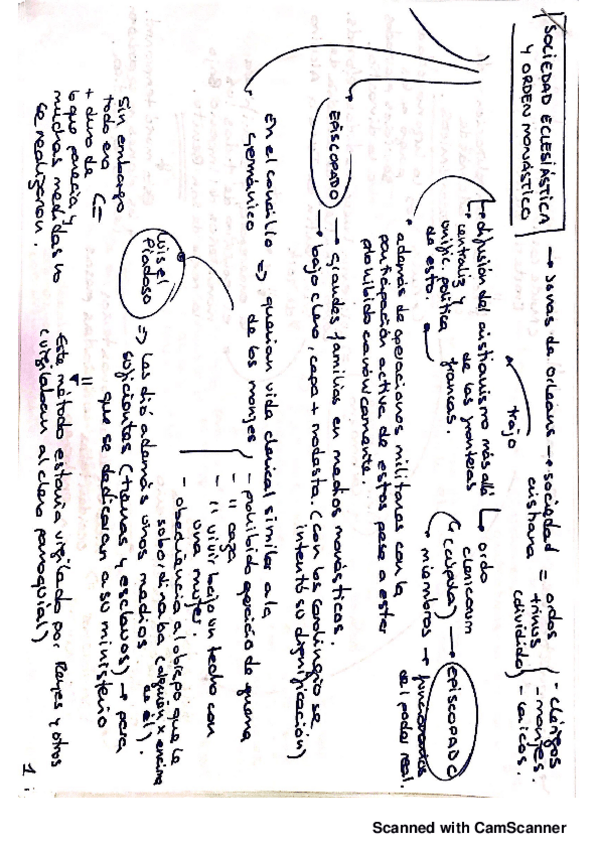 SOCIEDAD ECLESIÁSTICA
Y ORDEN MONÁSTICO
→ Jonas de Orleans → sociedad = ordo
cristiana trinus
(dividido)
- clérigos
- monjes
- laicos.
trajo
↳ difusión del cristianismo más allá
de las fronteras
francas.
centraliz y
unific. política
de esto.
↳ ordo
clericorum
(cúpula) → EPISCOPADO
• miembros → funcionarios
del poder real.
• además de operaciones militares con la
participación activa de estos pese a estar
prohibido canónicamente.
EPISCOPADO → grandes familias en medios monásticos.
→ bajo clero, capa + modesta. (con los carolingios se
intentó su dignificación)
En el concilio => querían vida clerical similar a la
germánico de los monjes
- prohibido ejercicio de guerra
- " caza
- " vivir bajo un techo con
una mujer.
- obediencia al obispo que le
subordinaba (alguien x encima
de él).
Luis el
Piadoso => Les dió además unos medios
suficientes (tierras y esclavos) → para
que se dedicaran a su ministerio
"
Este método estaría vigilado por Reyes y otros
(vigilaban al clero parroquial)
Sin embargo
todo era (=
+ duro de
lo que parecía y
muchas medidas no
se realizaron.
1.
Scanned with CamScanner